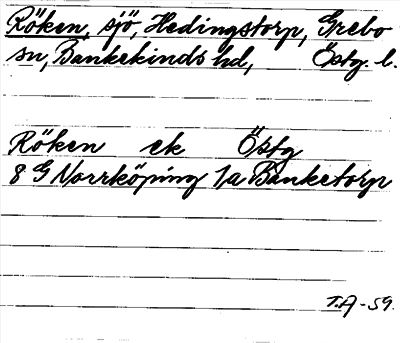 Röken, sjö, Hedingstorp, Grebo
sn, Bankekinds hd, Östg. l.
Röken ek Östg
8 G Norrköping 1a Banketorp
T.A-59.